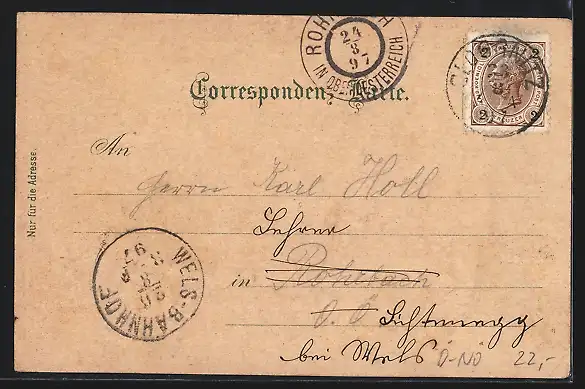 ROHRBACH
24
8
97
IN OBERÖSTERREICH
Correspondenz-Karte.
2 2
KREUZER
2 2
An
Herrn Karl Holl
Lehrer
in Rohrbach
O. Ö. Lichtenegg
bei Wels Ö-NÖ 22,-
WELS-BAHNHOF
97
8
Nur für die Adresse.